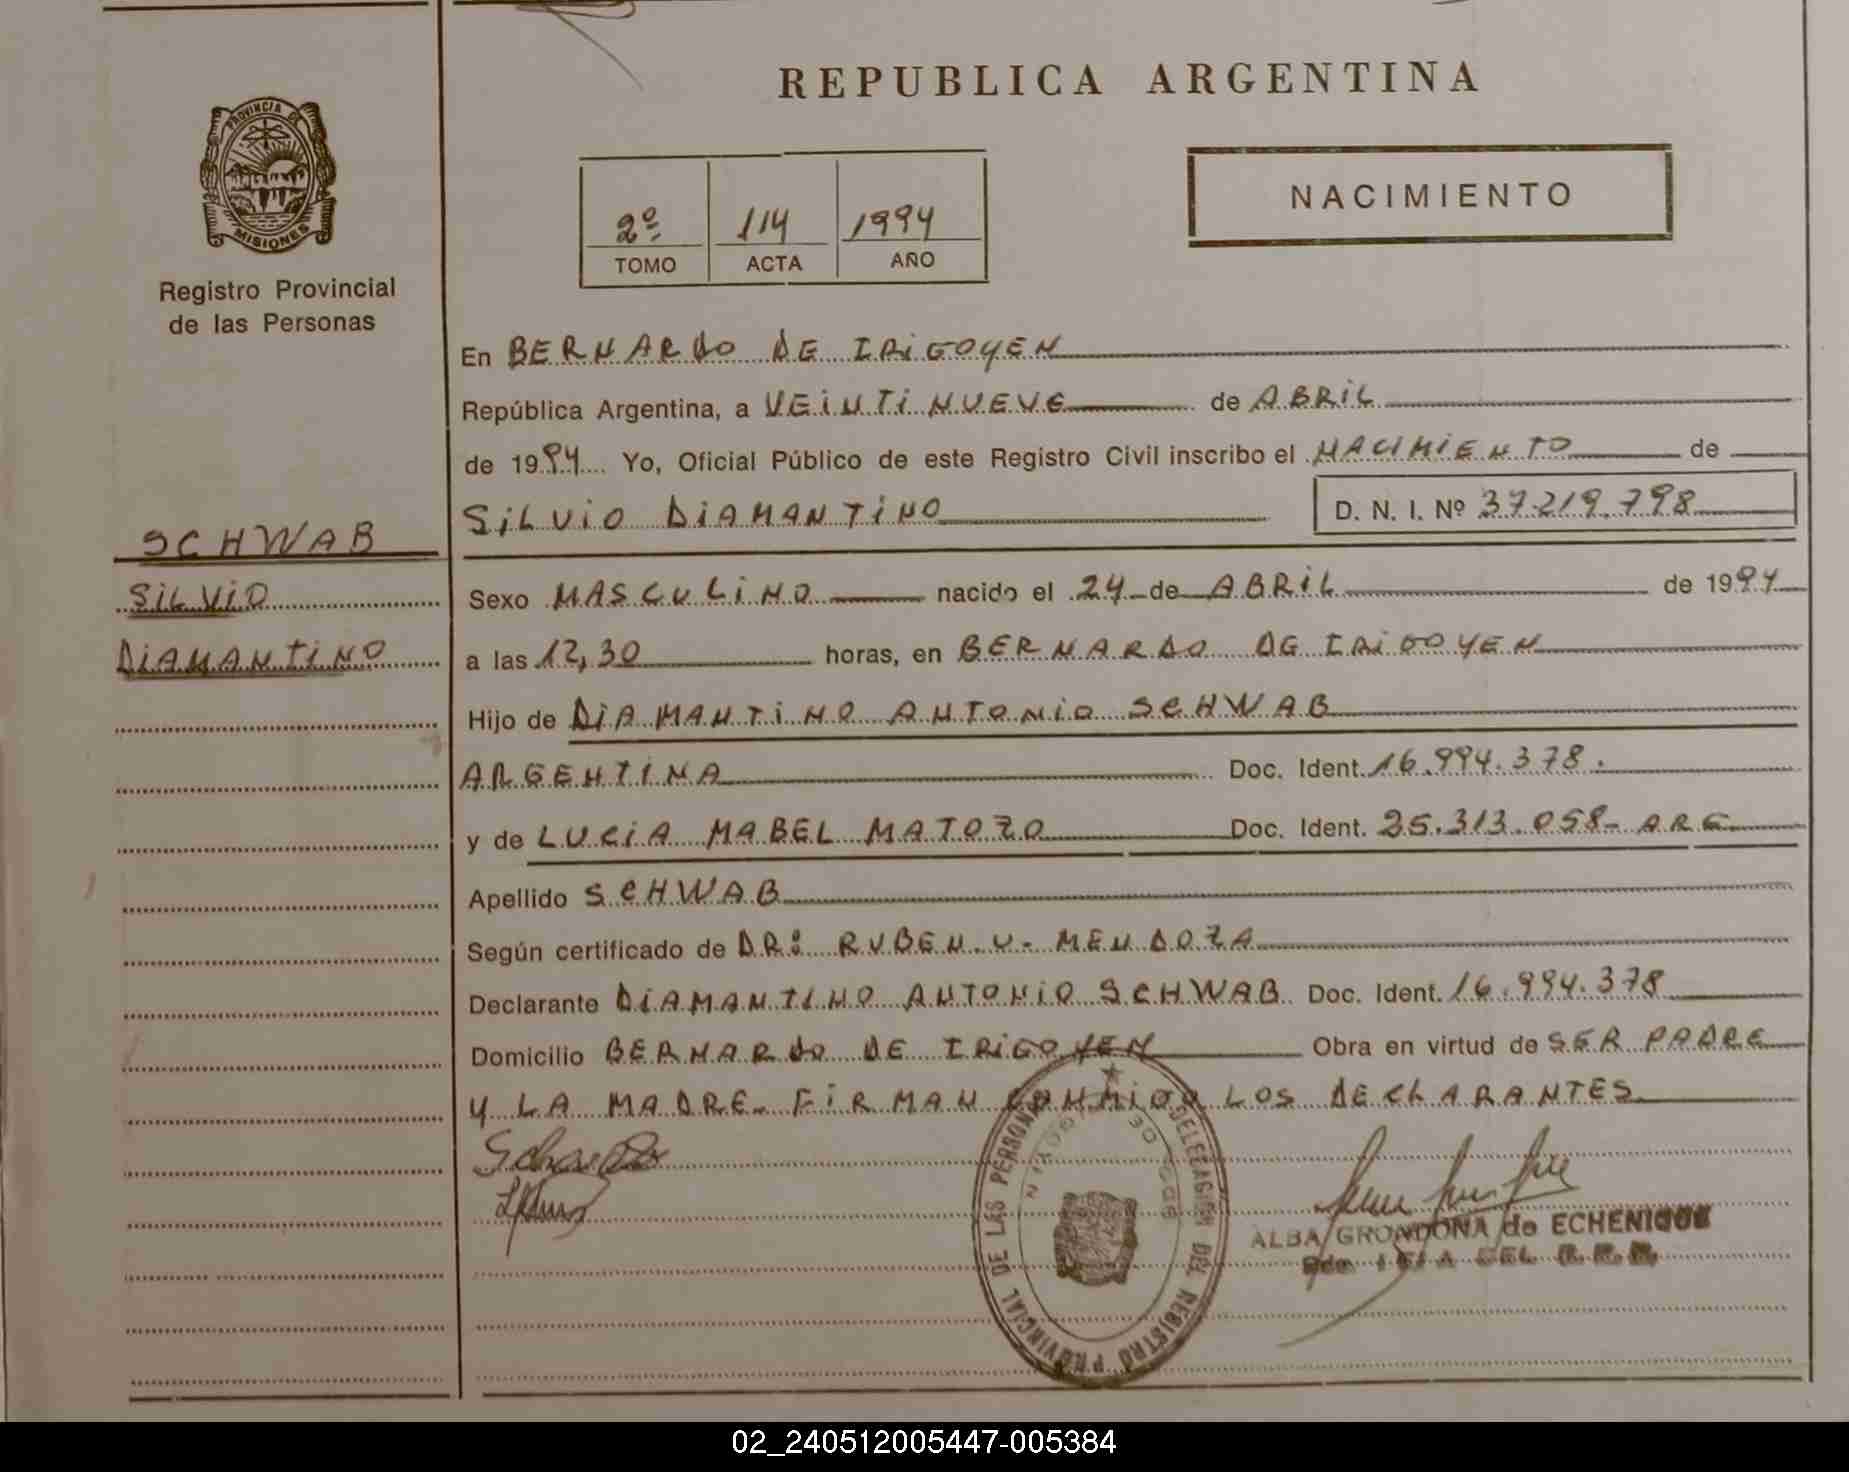 REPUBLICA ARGENTINA
PROVINCIA DE
MISIONES
Registro Provincial
de las Personas
2º 114 1994
TOMO ACTA AÑO
NACIMIENTO
En BERNARDO DE IRIGOYEN
República Argentina, a VEINTI NUEVE de ABRIL
de 1994 Yo, Oficial Público de este Registro Civil inscribo el NACIMIENTO de
SILVIO DIAMANTINO D. N. I. Nº 37.219.798
SCHWAB
SILVIO
DIAMANTINO
Sexo MASCULINO nacido el 24 de ABRIL de 1994
a las 12,30 horas, en BERNARDO DE IRIGOYEN
Hijo de DIAMANTINO ANTONIO SCHWAB
ARGENTINA Doc. Ident. 16.994.378.
y de LUCIA MABEL MATOZO Doc. Ident. 25.313.058- ARG
Apellido SCHWAB
Según certificado de DR: RUBEN.U. MENDOZA
Declarante DIAMANTINO ANTONIO SCHWAB Doc. Ident. 16.994.378
Domicilio BERNARDO DE IRIGOYEN Obra en virtud de SER PADRE
Y LA MADRE. FIRMAN CONMIGO LOS DECLARANTES
DELEGACION DEL REGISTRO PROVINCIAL DE LAS PERSONAS
ALBA GRONDONA de ECHENIQUE
02_240512005447-005384